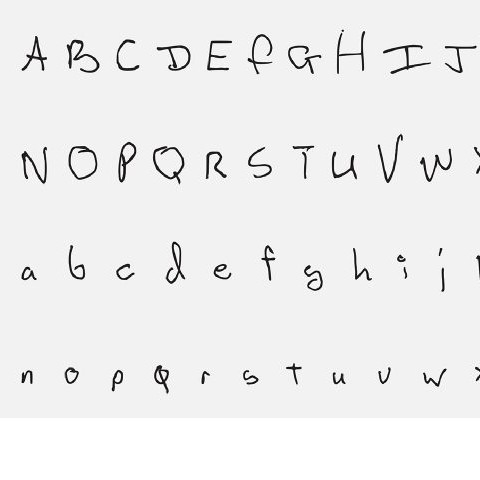 A B C D E F G H I J
N O P Q R S T U V W
a b c d e f g h i j
n o p q r s t u v w